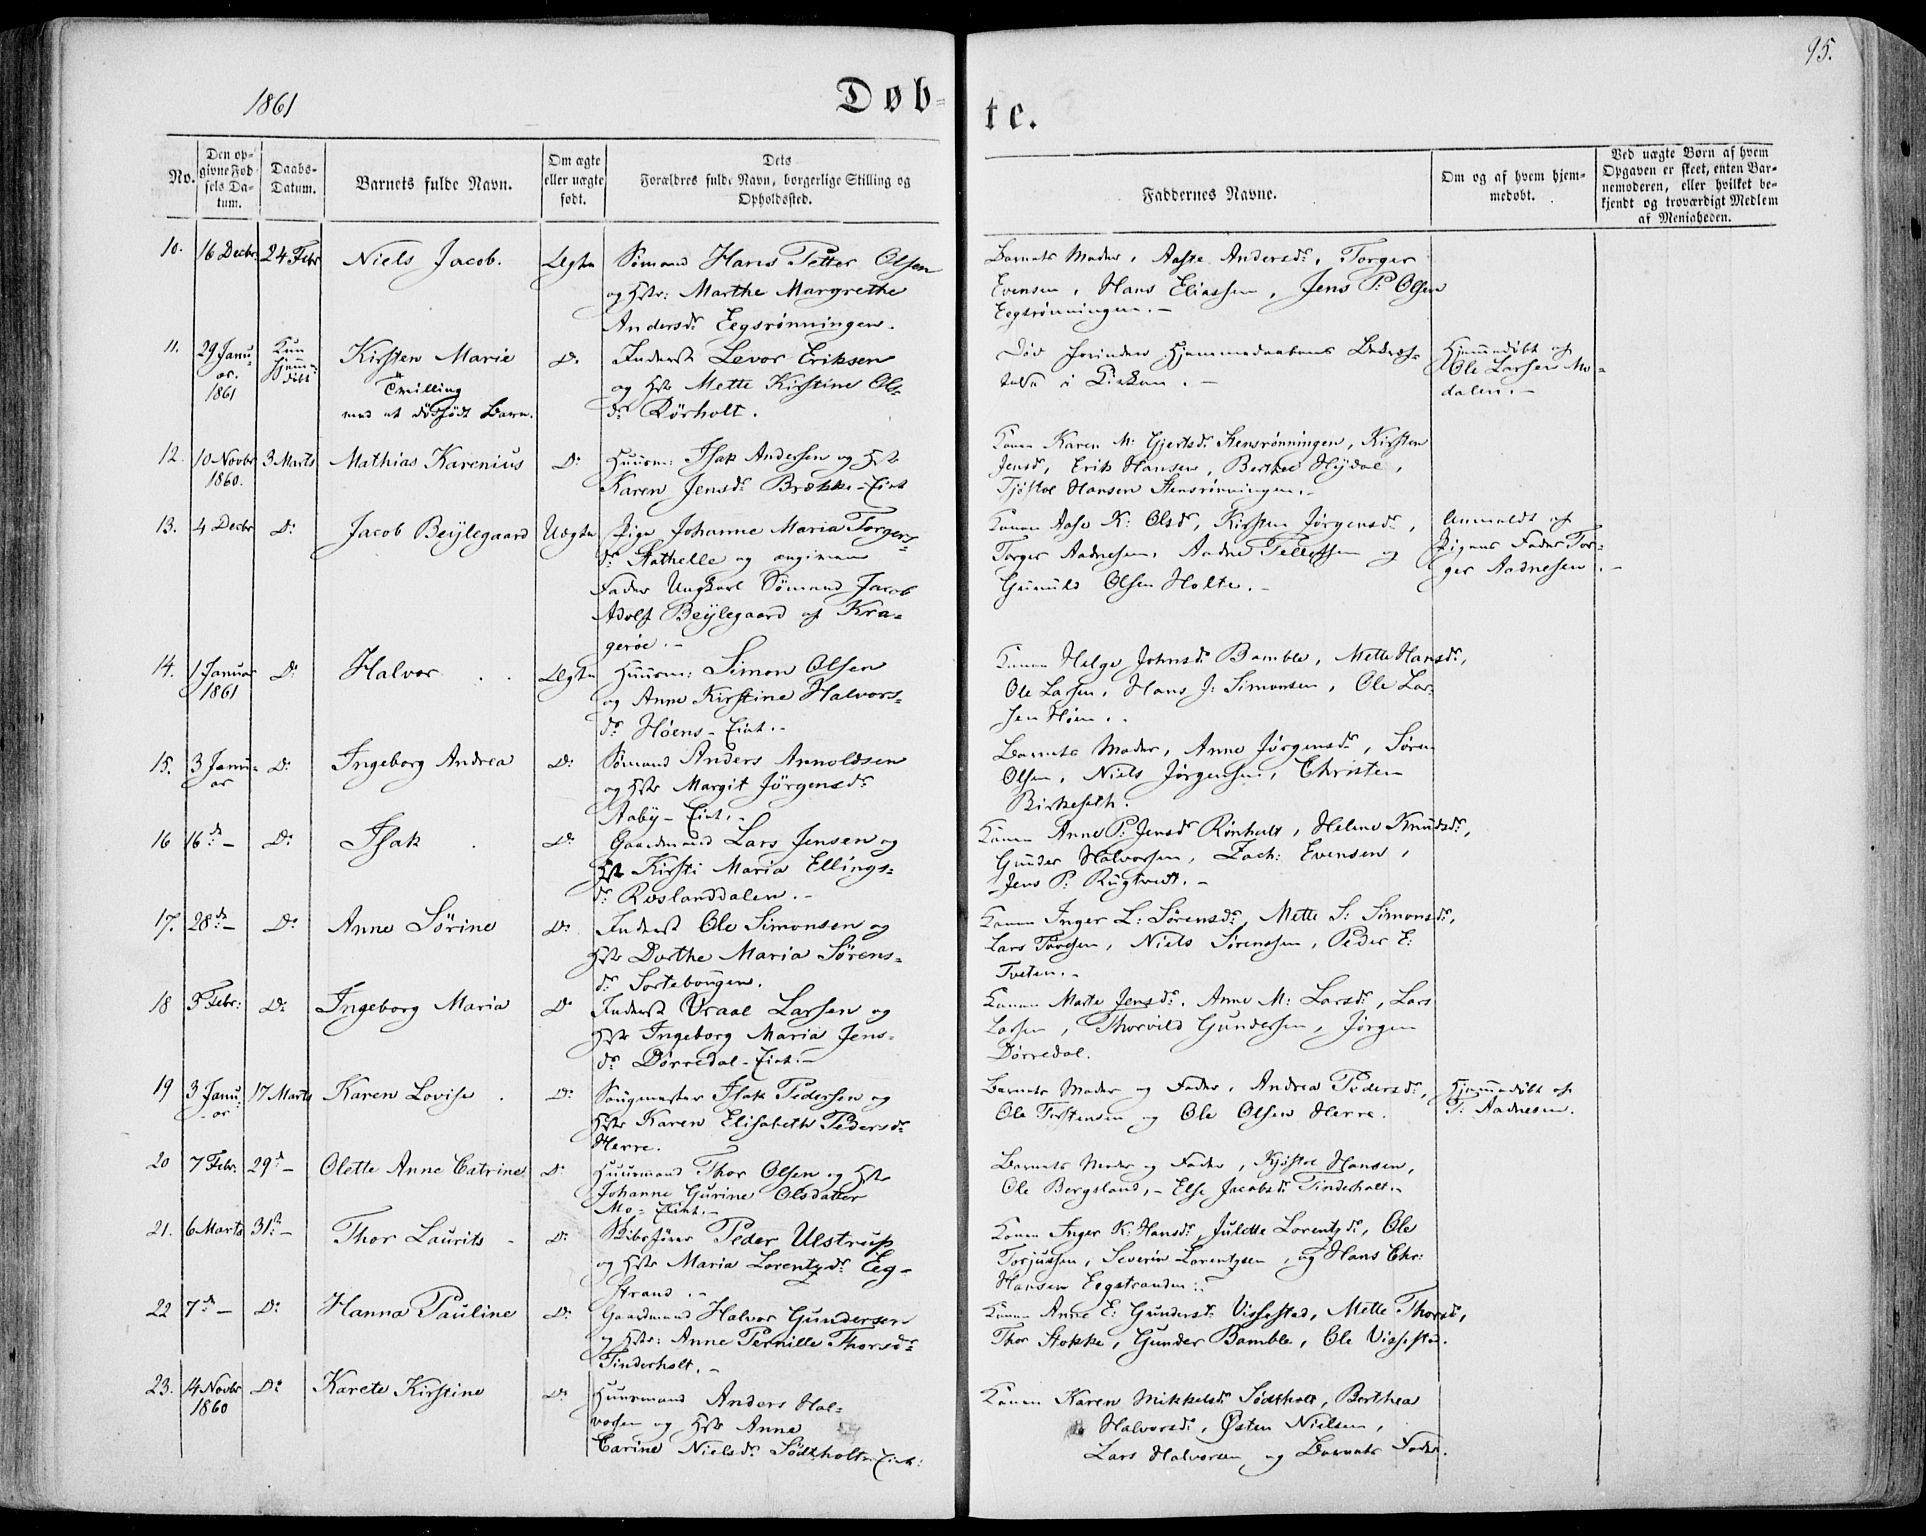 95.
1861
Døb-
te.
No.
Den op-
givne Fød-
sels Da-
tum.
Daabs-
Datum.
Barnets fulde Navn.
Om ægte
eller uægte
født.
Dets
Forældres fulde Navn, borgerlige Stilling og
Opholdssted.
Faddernes Navne.
Om og af hvem hjem-
medøbt.
Ved uægte Børn af hvem
Opgaven er skeet, enten Bar-
nemoderen, eller hvilket be-
kjendt og troværdigt Medlem
af Menigheden.
10. 16 Decbr: 24 Febr Niels Jacob. Ægte Sømand Hans Petter Olsen
og Hstr: Marthe Margrethe
Andersdr Eegsrønningen.
Barnets Moder, Aaste Andersdr, Torger
Evensen, Hans Eliassen, Jens P: Olsen
Eegsrønningen.-
11. 29 Janu-
ar.
1861
Kun
hjem-
døbt
Kirsten Marie
Tvilling
med et dødfødt Barn.
Do Inderst Levor Eriksen
og Hstr Mette Kirstine Ols-
dr Rörholt.
Død forinden Hjemmedaabens Bekræf-
telse i Kirken.-
Hjemmedøbt af
Ole Larsen Mo-
dalen.-
12. 10 Novbr
1860.
3 Marts Mathias Karenius Do Huusm: Isak Andersen og Hstr
Karen Jensdr Brække-Eiet
Konen Karen M: Gjertsdr Stensrønningen, Kirsten
Jensd, Erik Hansen, Berthe Hejdal,
Tjöstol Hansen Stensrönningen.-
13. 4 Decbr Do Jacob Beijlegaard Uægte Pige Johanne Maria Torgers-
dr Stathelle og angiven
Fader Ungkarl Sømand Jacob
Adolf Beijlegaard af Kra-
gerøe.-
Konen Aase K: Olsdr, Kirsten Jörgensdr,
Torger Aadnesen, Aadne Tellefsen og
Gunuld Olsen Holte.-
Anmeldt af
Pigens Fader Tor-
ger Aadnesen.-
14. 1 Januar
1861
Do Halvor Ægte Huusm: Simon Olsen
og Anne Kirstine Halvors-
dr Höens-Eiet.-
Konen Helge Johnsdr Bamble, Mette Hansdr,
Ole Larsen, Hans J: Simonsen, Ole Lar-
sen Höen.
15. 3 Janu-
ar
Do Ingeborg Andrea Do Sømand Anders Arnoldsen
og Hstr Margit Jörgensdr
Aaby-Eiet.-
Barnets Moder, Anne Jörgensdr, Sören
Olsen, Niels Jørgensen, Christen
Birkeseth.
16 16de- Do Isak Do Gaardmand Lars Jensen og
Hstr Kirsti Maria Ellings-
dr Roslanddalen.-
Konen Anne P: Jensdr Rönholt, Helene Knudsdr,
Gunder Halvorsen, Zach: Evensen,
Jens P: Rugtvedt.-
17. 28de- Do Anne Sörine Do Inderst Ole Simonsen og
Hstr Dorthe Maria Sörens-
dr Sortebougen.
Konen Inger L: Sörensdr, Mette S: Simonsdr,
Lars Tovsen, Niels Sörensen, Peder E:
Tveten.-
18 3 Febr: Do Ingeborg Maria Do Inderst Vraal Larsen og
Hstr Ingeborg Maria Jens-
dr Dörredal-Eiet.-
Konen Marte Jensdr, Anne M: Larsdr, Lars
Larsen, Thorvild Gundersen, Jörgen
Dörredal.
19 3 Janu-
ar
17 Marts Karen Lovise Do Saugmester Isak Pedersen og
Hstr Karen Elisabeth Pedersdr
Herre.
Barnets Moder og Fader, Andrea Pedersdr,
Ole Torstensen og Ole Olsen Herre.
Hjemmedøbt af
T: Aadnesen.
20 7 Febr. 29de- Olette Anne Catrine Do Huusmand Thor Olsen og Hstr
Johanne Gurine Olsdatter
Mo-Eiet.-
Barnets Moder og Fader, Kjöstol Hansen,
Ole Bergsland,- Else Jacobsdr Tinderholt.-
21. 6 Marts 31te- Thor Laurits Do Skibsfører Peder Ulstrup
og Hstr Maria Lorentzdr Eeg-
Strand.-
Konen Inger K: Hansdr, Julette Lorentzdr, Ole
Torjussen, Severin Lorentzen, og Hans Chr:
Hansen Eegstranden:-
22 7de- Do Hanna Pauline Do Gaardmand Halvor Gundersen
og Hstr: Anne Pernille Thorsdr
Tinderholt.-
Konen Anne E: Gundersdr Vissestad, Mette Thorsd,
Thor Stokke, Gunder Bamble, Ole Vissestad.
23. 14 Novbr
1860
Do Karete Kirstine Do Huusmand Anders Hal-
vorsen og Hstr Anne
Carine Nielsdr Södtholt Eiet.
Konen Karen Mikkelsdr Södtholt, Berthea
Halvorsdr, Østen Nielsen,
Lars Halvorsen og Barnets Fader.